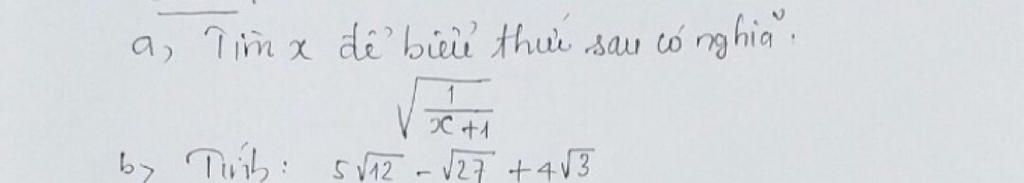 a, Tìm x để biểu thức sau có nghĩa.
√(1/(x+1))
b, Tính: 5√12 - √27 + 4√3